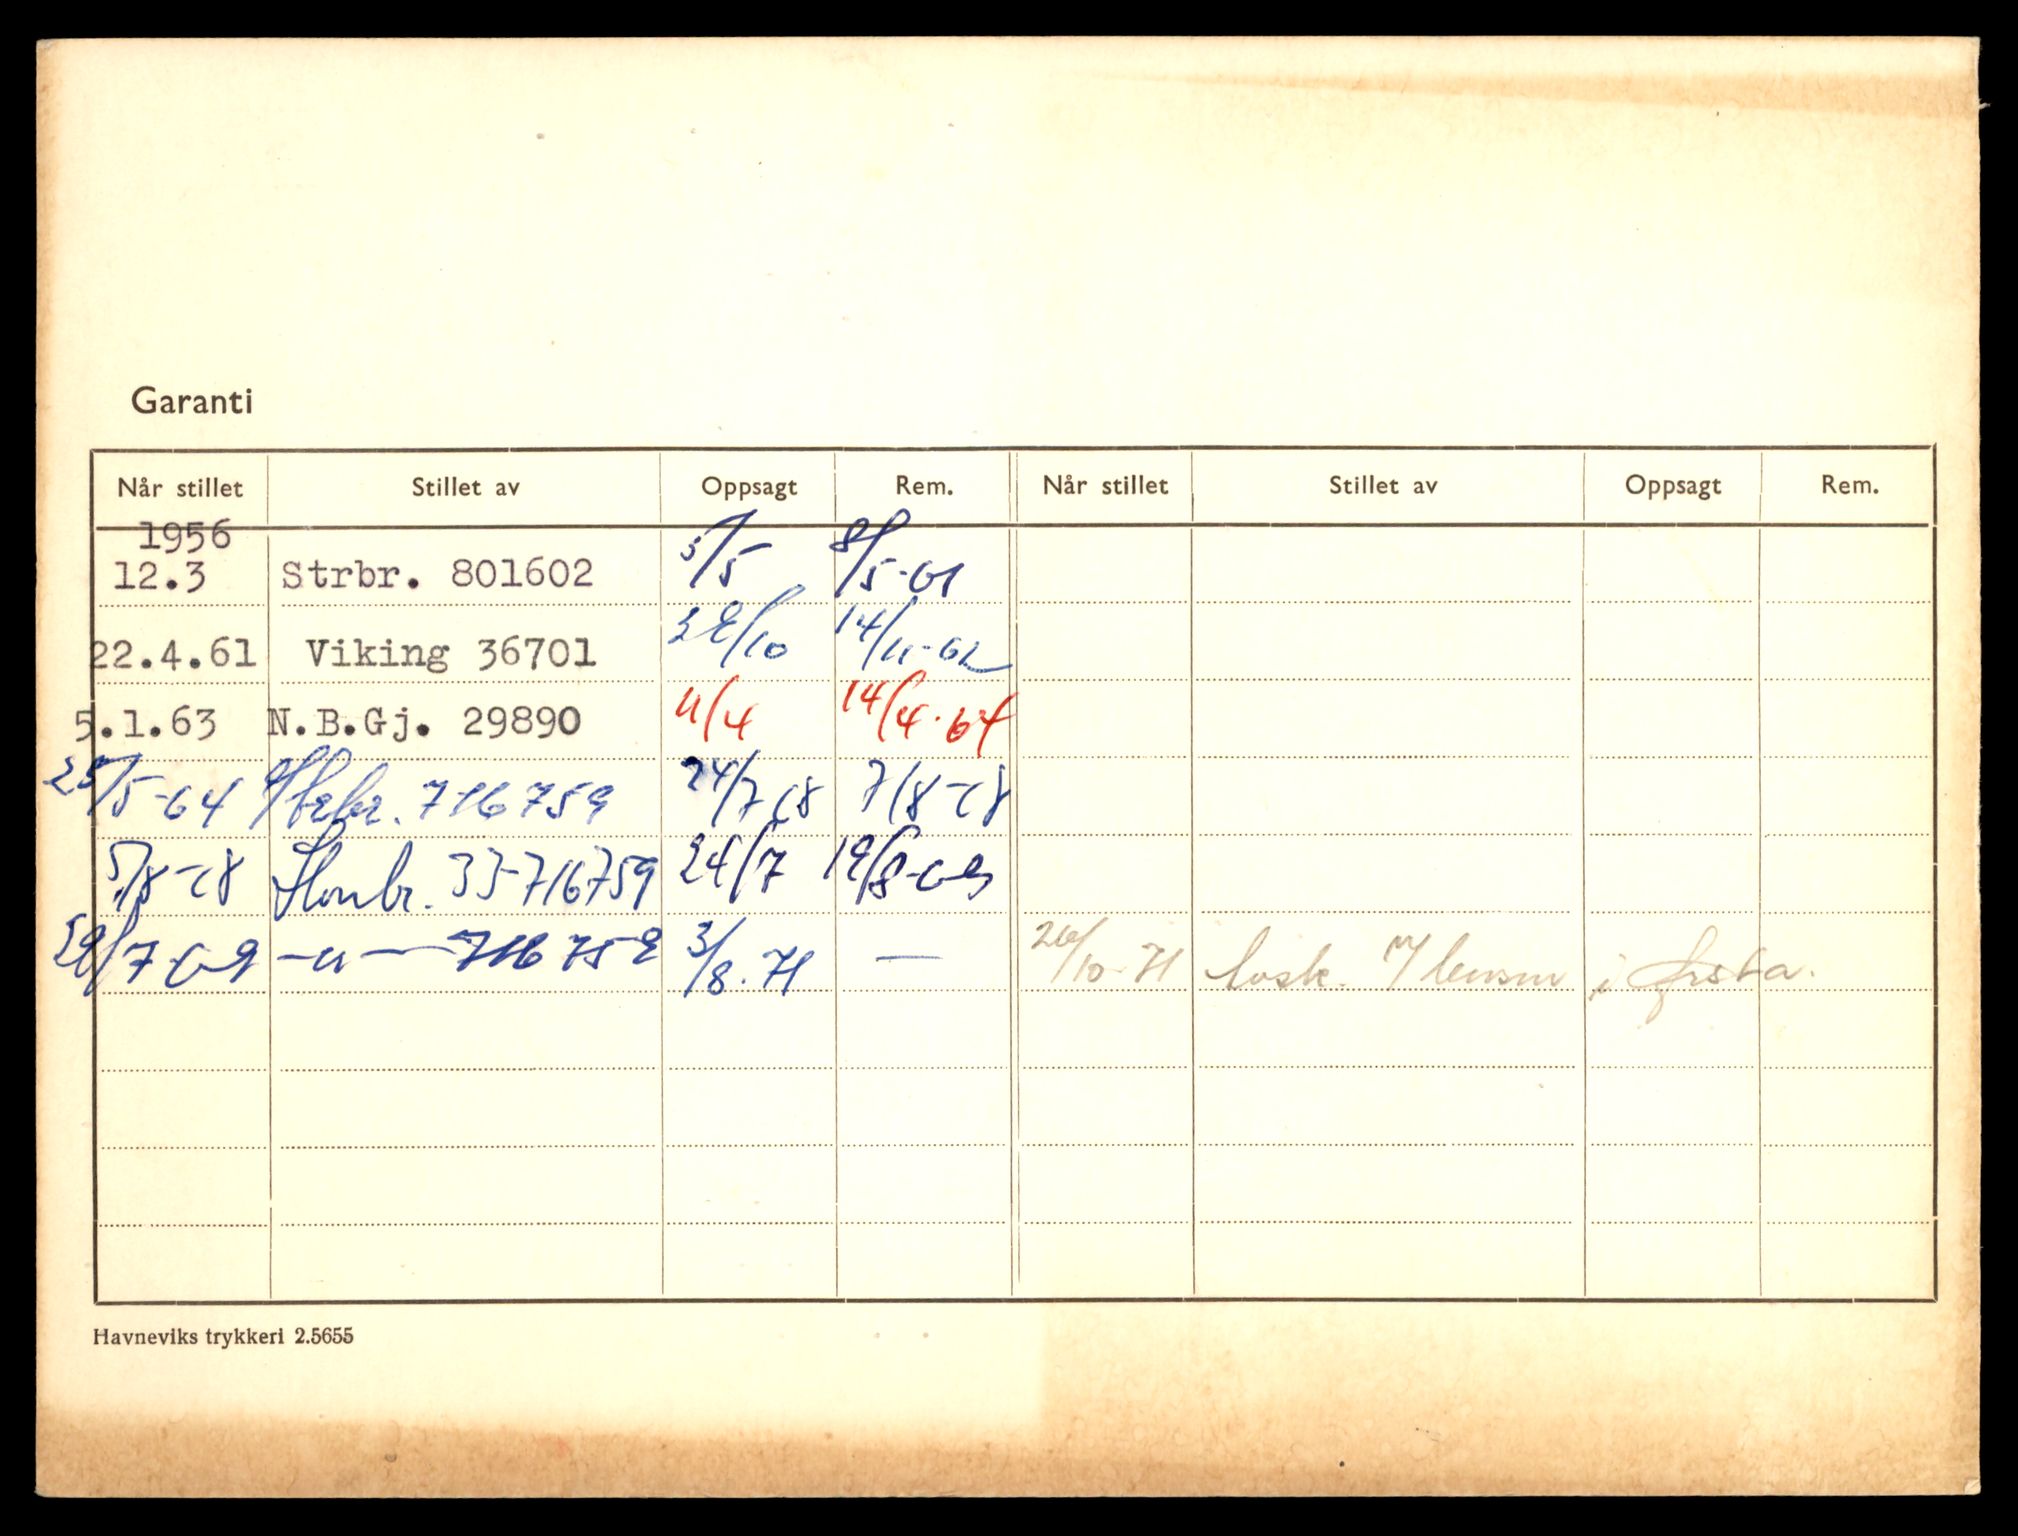 Garanti
Når stillet Stillet av Oppsagt Rem. Når stillet Stillet av Oppsagt Rem.
1956
12.3 Strbr. 801602 5/5 8/5-61
22.4.61 Viking 36701 29/10 14/11-62
5.1.63 N.B.Gj. 29890 11/4 14/4-64
25/5-64 Strbr. 716759 24/7 68 7/8-68
5/8-68 33-716759 24/7 19/8-69
29/7-69 -"- 716759 3/8.71 — 26/10-71 i Ørsta.
Havneviks trykkeri 2.5655